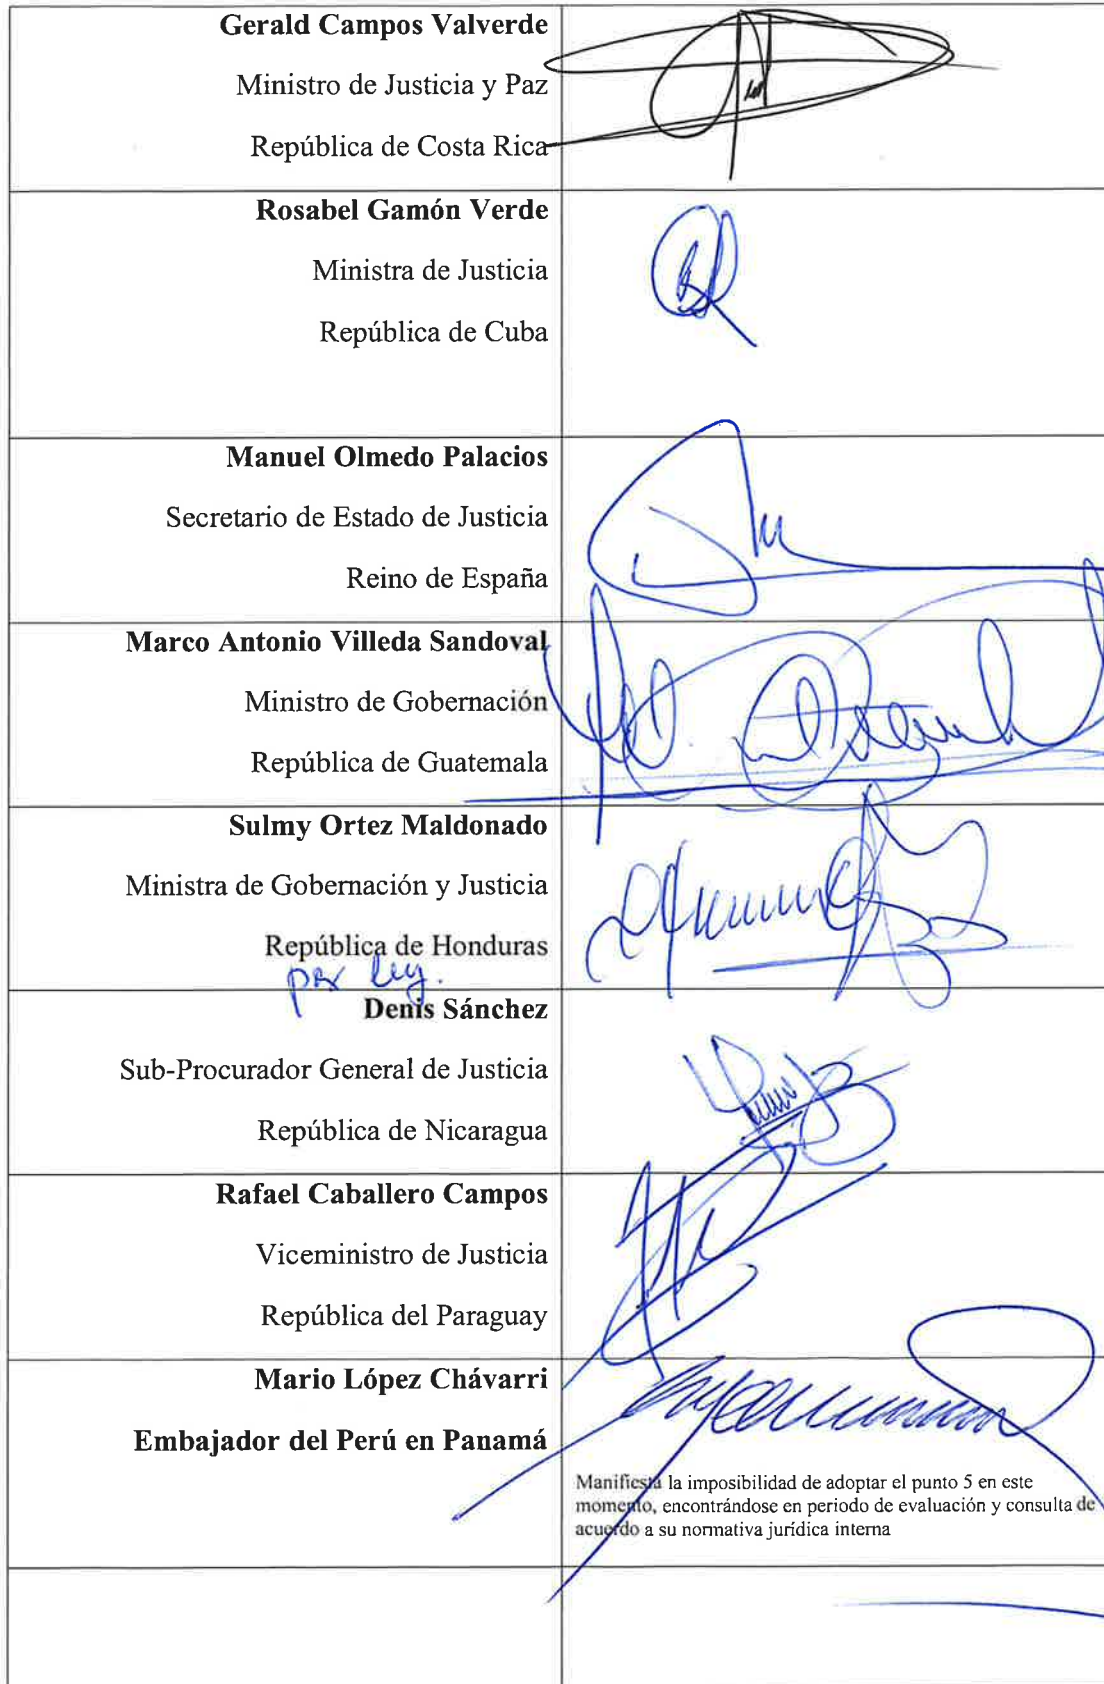 Gerald Campos Valverde
Ministro de Justicia y Paz
República de Costa Rica
Rosabel Gamón Verde
Ministra de Justicia
República de Cuba
Manuel Olmedo Palacios
Secretario de Estado de Justicia
Reino de España
Marco Antonio Villeda Sandoval
Ministro de Gobernación
República de Guatemala
Sulmy Ortez Maldonado
Ministra de Gobernación y Justicia
República de Honduras
por ley.
Denis Sánchez
Sub-Procurador General de Justicia
República de Nicaragua
Rafael Caballero Campos
Viceministro de Justicia
República del Paraguay
Mario López Chávarri
Embajador del Perú en Panamá
Manifiesta la imposibilidad de adoptar el punto 5 en este
momento, encontrándose en periodo de evaluación y consulta de
acuerdo a su normativa jurídica interna